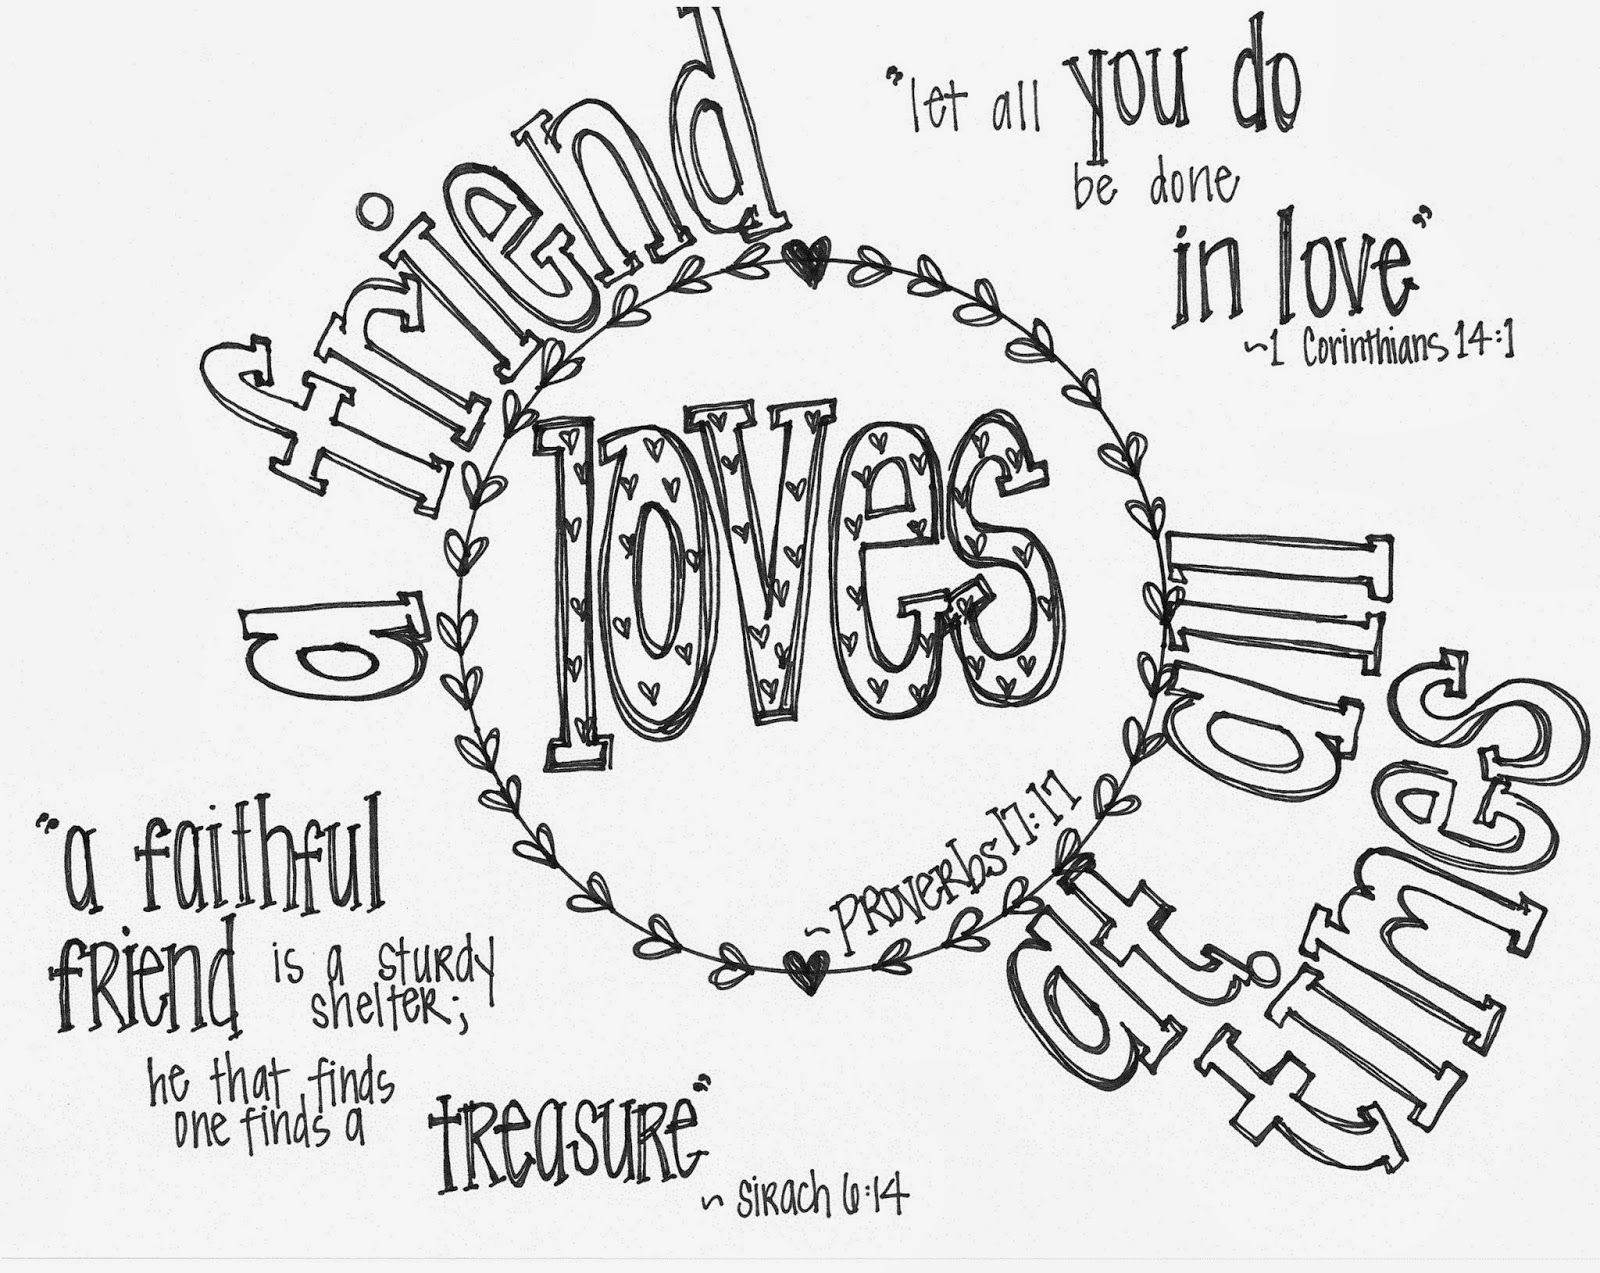 a friend
loves
at all
times
~PROVERBS 17:17
"let all you do
be done
in love"
~1 Corinthians 14:1
"a faithful
fRiend is a stuRdy
shelteR;
he that finds
one finds a
tReasuRe"
~ SiRach 6:14